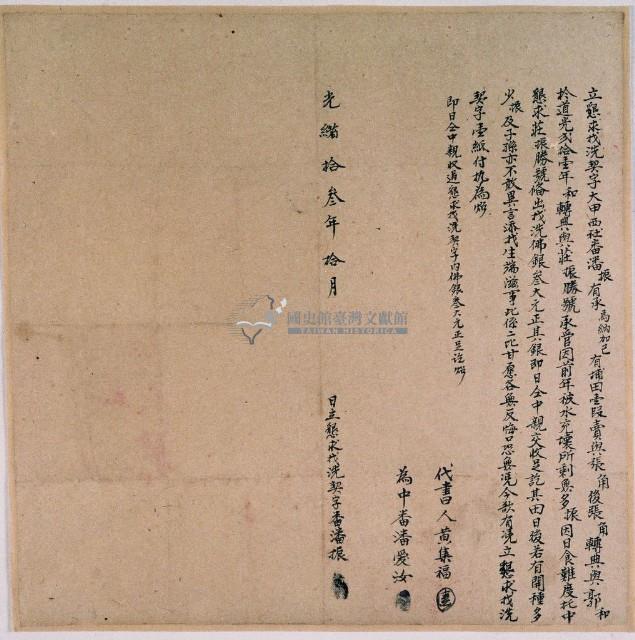 立懇求找洗契字大甲西社番潘振有承烏蚋加己有埔田壹段賣與張角後張角轉典與郭和
於道光弍拾壹年和轉典與莊振勝號承管因前年被水充壞所剩無多振因日食難度托中
懇求莊振勝號備出找洗佛銀叁大元正其銀即日仝中親交收足訖其田日後若有開種多
少振及子孫亦不敢異言添找生端滋事此係二比甘愿各無反悔口恐無憑今欲有憑立懇求找洗
契字壹紙付执為炤
即日仝中親收過懇求找洗契字內佛銀叁大元正足訖炤
代書人黃集福
為中番潘愛汝
光緒拾叁年拾月
日立懇求找洗契字番潘振
國史館臺灣文獻館
TAIWAN HISTORICA